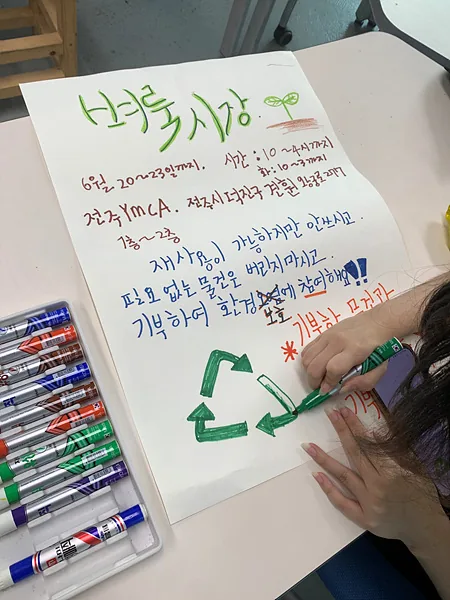 벼룩시장
6월 20~23일까지. 시간: 10~4시까지
화: 10~3까지
전주YMCA. 전주시 덕진구 견훤왕궁로
1층~2층
재사용이 가능하지만 안쓰시고.
필요 없는 물건은 버리지마시고.
기부하여 환경보호에 참여해요!!
*기부함 물건과
기부